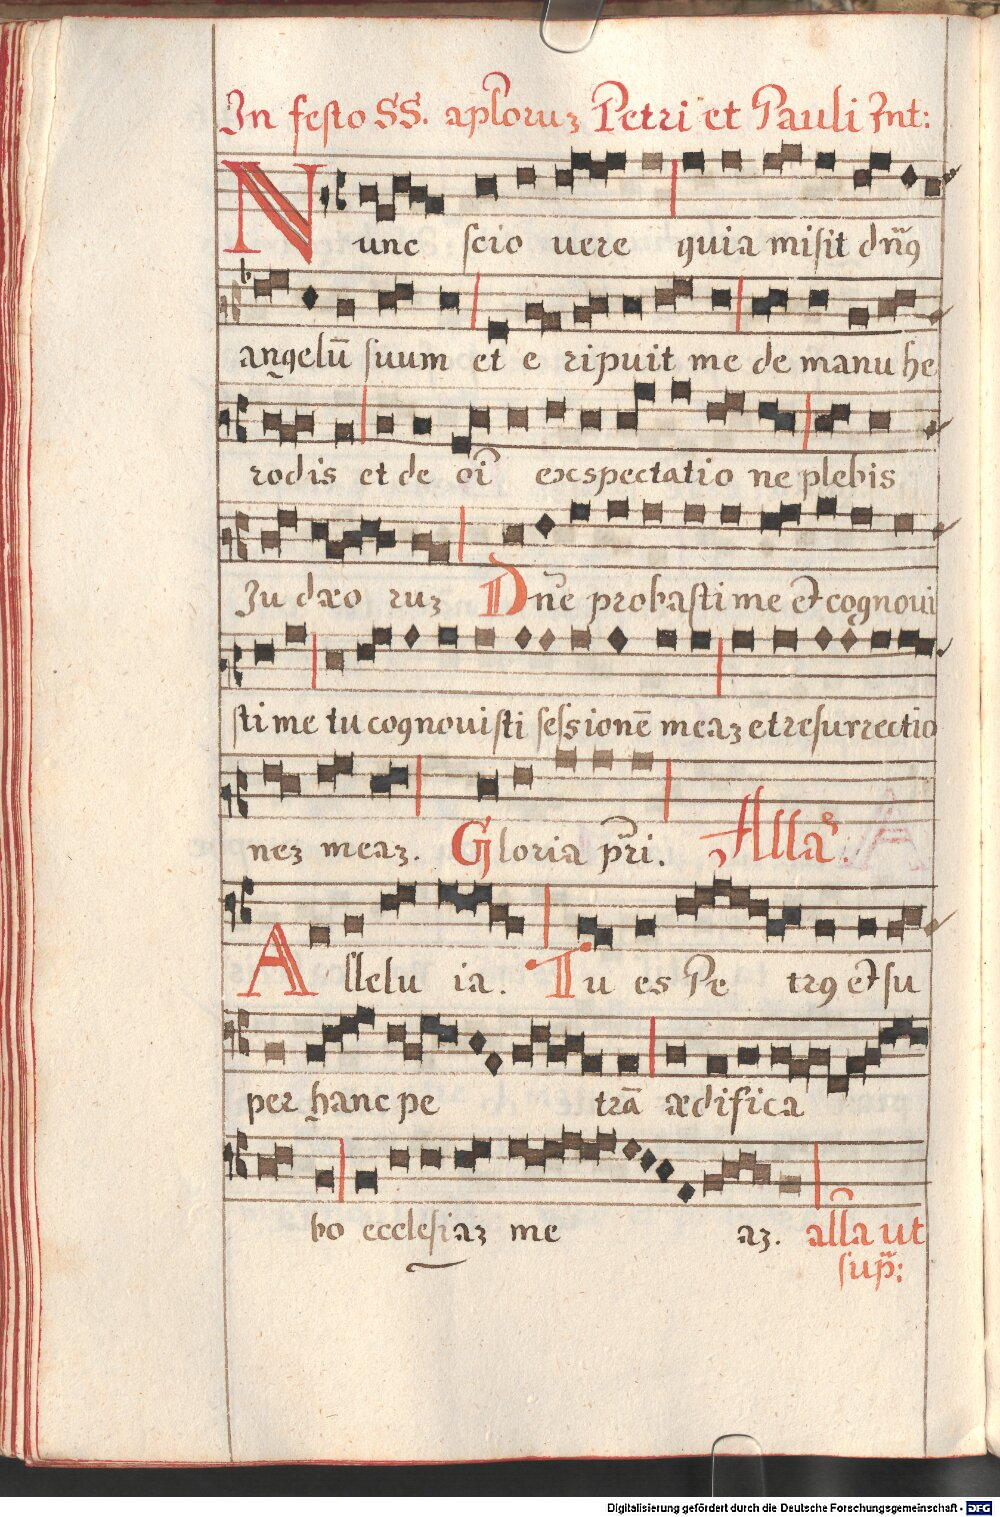 In festo SS. aploruȝ Petri et Pauli Int:
Nunc scio vere quia misit dn̄ꝯ
angelū suum et e ripuit me de manu he
rodis et de oī excspectatio ne plebis
Ju dæo ruȝ Dn̄e probasti me et cognovi
sti me tu cognovisti sessionē meaȝ et resurrectio
neȝ meaȝ. Gloria pr̄i. Alla.
Allelu ia. Tu es Pe trꝯ et su
per hanc pe trā ædifica
bo ecclesiaȝ me aȝ. all̄a ut
sup̄:
Digitalisierung gefördert durch die Deutsche Forschungsgemeinschaft - DFG